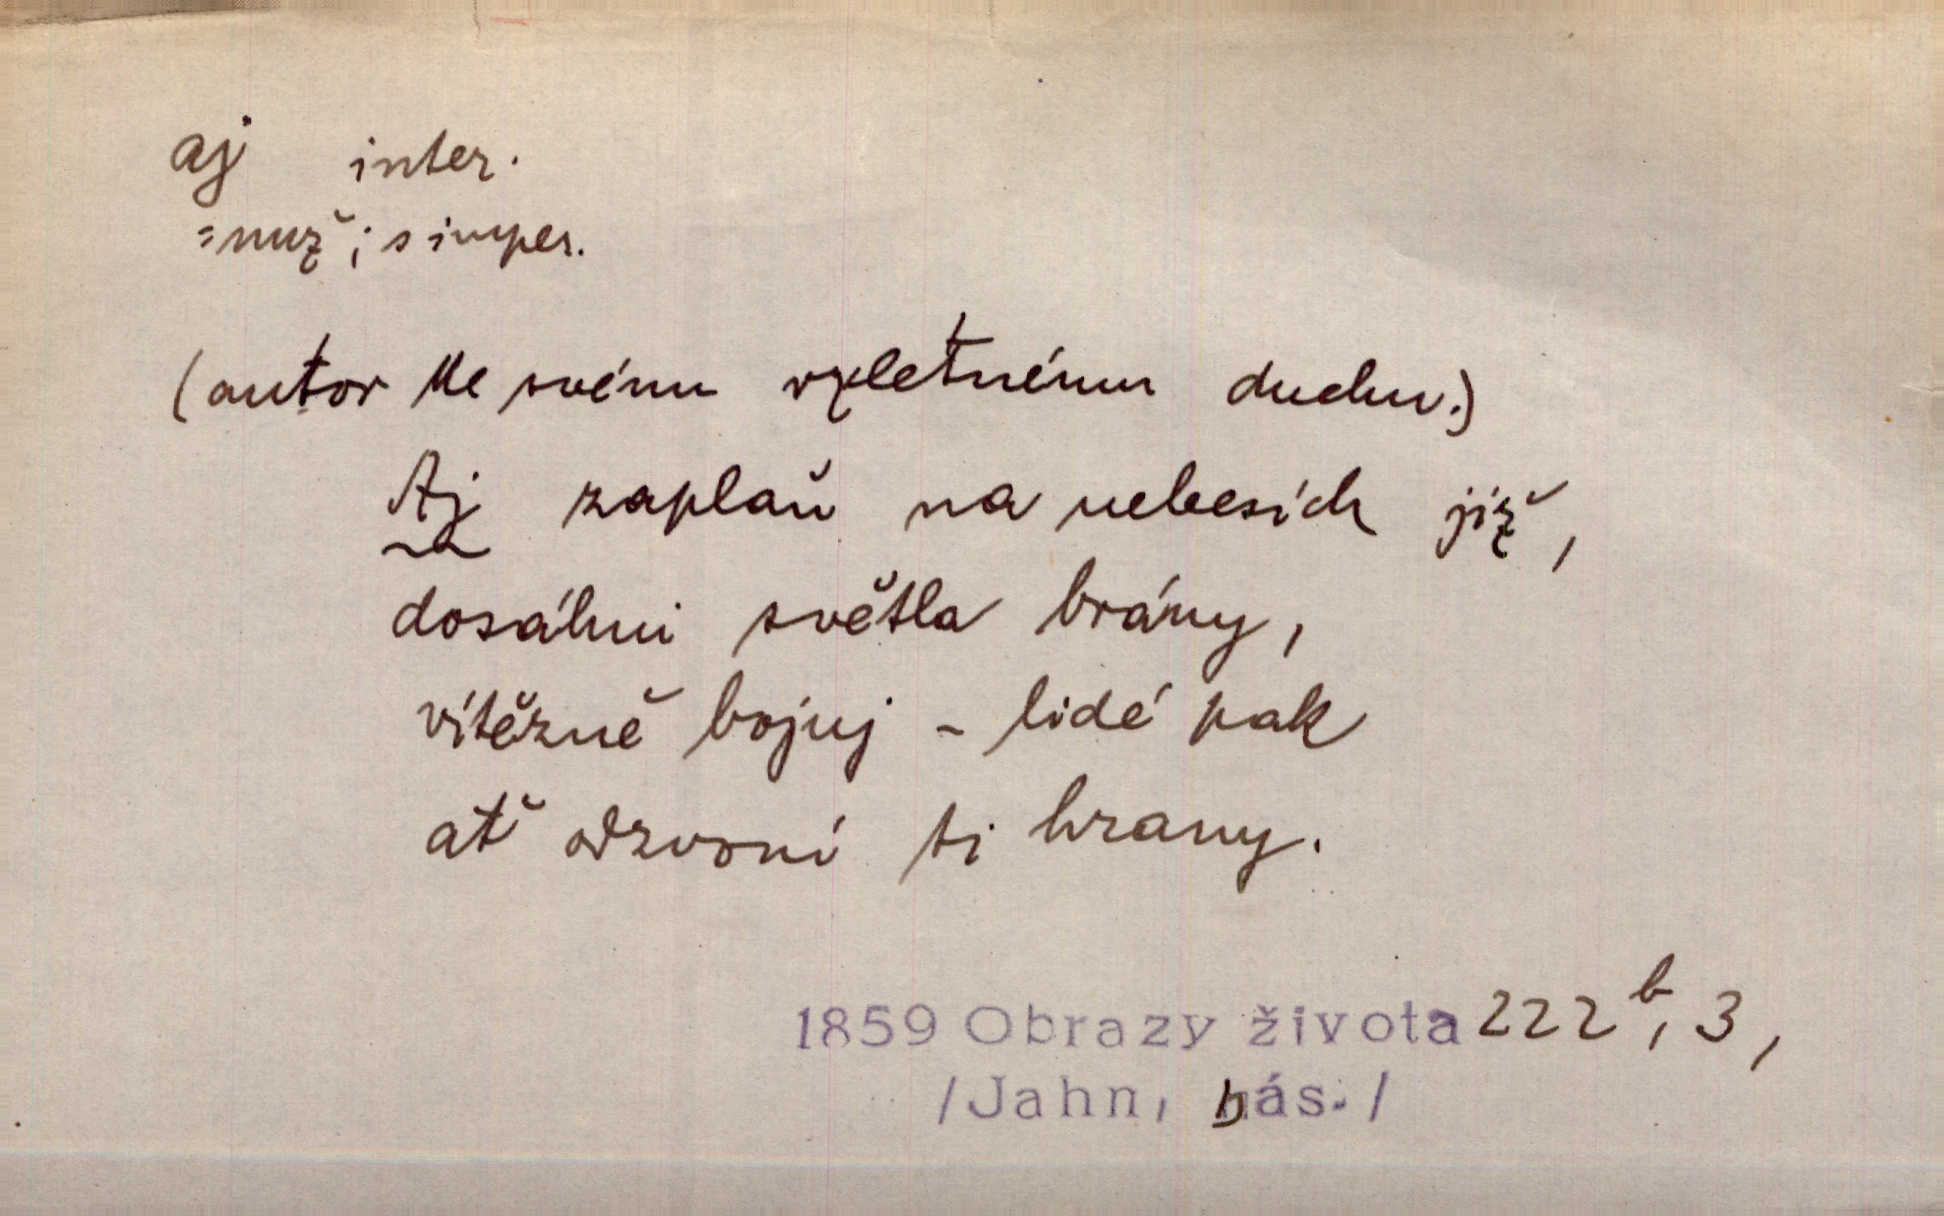 aj inter.
=nuž; s imper.
(autor ke svému vzletnému duchu.)
Aj zaplaň na nebesích již,
dosáhni světla brány,
vítězně bojuj - lidé pak
ať odzvoní ti hrany.
1859 Obrazy života 222b, 3,
/Jahn, bás./